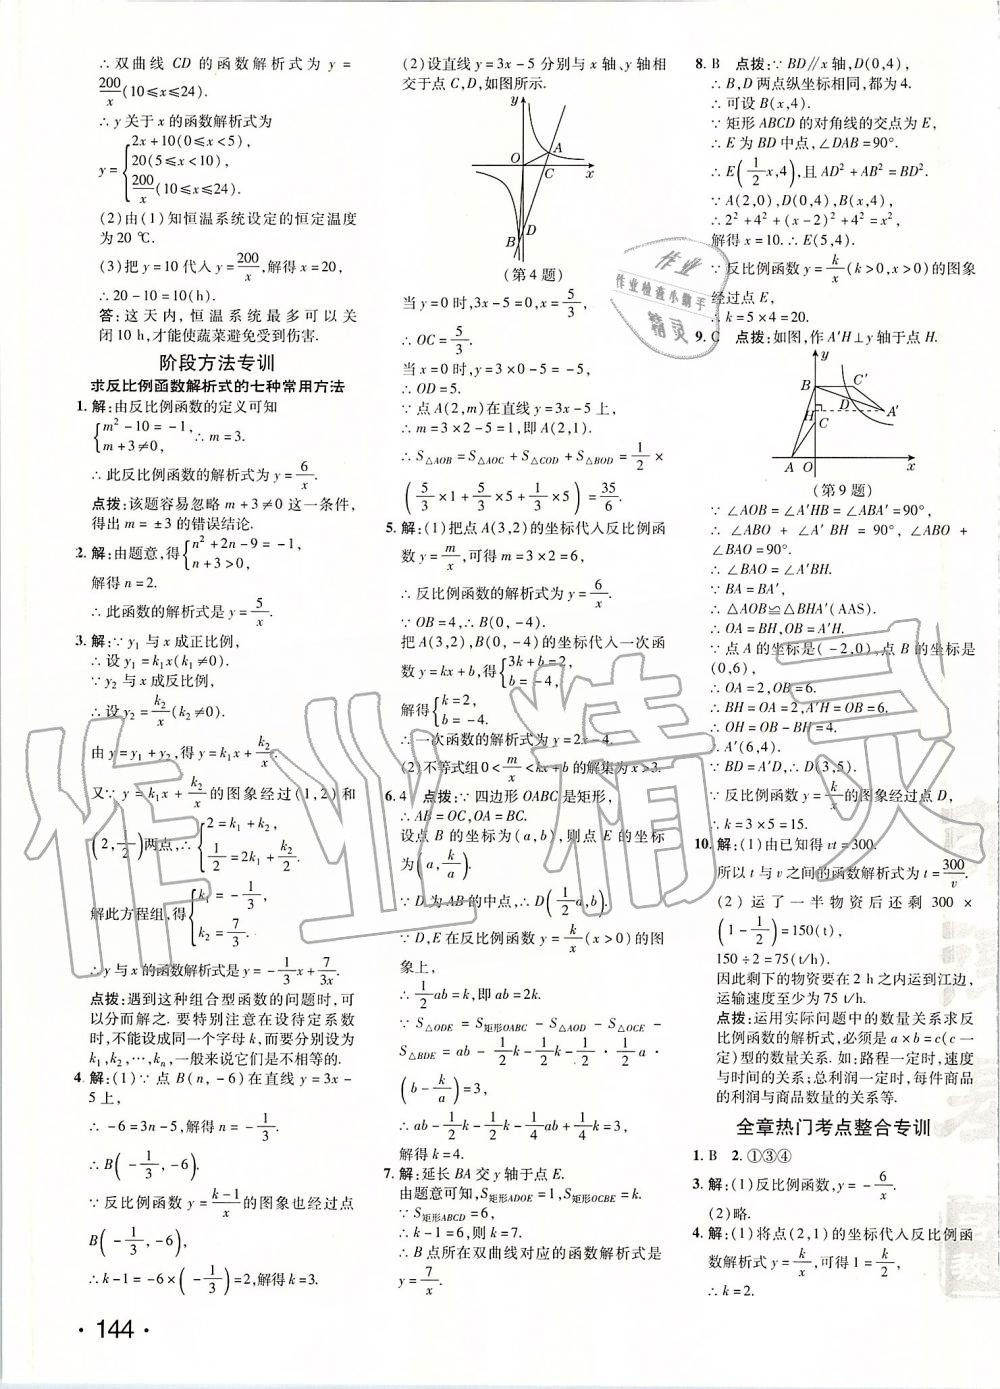 ∴双曲线 CD 的函数解析式为 y =
200/x(10≤x≤24).
∴y关于x的函数解析式为
y={2x+10(0≤x<5),
20(5≤x<10),
200/x(10≤x≤24).
(2)由(1)知恒温系统设定的恒定温度
为20 ℃.
(3)把y=10代入y=200/x,解得x=20,
∴20-10=10(h).
答:这天内,恒温系统最多可以关
闭10 h,才能使蔬菜避免受到伤害.
阶段方法专训
求反比例函数解析式的七种常用方法
1. 解:由反比例函数的定义可知
{m²-10=-1,
m+3≠0, ∴m=3.
∴此反比例函数的解析式为y=6/x.
点拨:该题容易忽略m+3≠0这一条件,
得出m=±3的错误结论.
2. 解:由题意,得{n²+2n-9=-1,
n+3>0,
解得n=2.
∴此函数的解析式是y=5/x.
3. 解:∵y₁与x成正比例,
∴设y₁=k₁x(k₁≠0).
∵y₂与x成反比例,
∴设y₂=k₂/x(k₂≠0).
由y=y₁+y₂,得y=k₁x+k₂/x.
又∵y=k₁x+k₂/x的图象经过(1,2)和
(2,1/2)两点,∴{2=k₁+k₂,
1/2=2k₁+k₂/2.
解此方程组,得{k₁=-1/3,
k₂=7/3.
∴y与x的函数解析式是y=-1/3x+7/3x.
点拨:遇到这种组合型函数的问题时,可
以分而解之. 要特别注意在设待定系数
时,不能设成同一个字母k,而要分别设为
k₁,k₂,…,kₙ,一般来说它们是不相等的.
4. 解:(1)∵点B(n,-6)在直线y=3x-
5上,
∴-6=3n-5,解得n=-1/3.
∴B(-1/3,-6).
∵反比例函数y=k-1/x的图象也经过点
B(-1/3,-6),
∴k-1=-6×(-1/3)=2,解得k=3.
(2)设直线y=3x-5分别与x轴、y轴相
交于点C,D,如图所示.
y
A
O C x
D
B
(第4题)
当y=0时,3x-5=0,x=5/3,
∴OC=5/3.
当x=0时,y=3×0-5=-5,
∴OD=5.
∵点A(2,m)在直线y=3x-5上,
∴m=3×2-5=1,即A(2,1).
∴S△AOB=S△AOC+S△COD+S△BOD=1/2×
(5/3×1+5/3×5+1/3×5)=35/6.
5. 解:(1)把点A(3,2)的坐标代入反比例函
数y=m/x,可得m=3×2=6,
∴反比例函数的解析式为y=6/x.
∵OB=4,∴B(0,-4).
把A(3,2),B(0,-4)的坐标代入一次函
数y=kx+b,得{3k+b=2,
b=-4,
解得{k=2,
b=-4.
∴一次函数的解析式为y=2x-4.
(2)不等式组0<m/x<kx+b的解集为x>3.
6. 4 点拨:∵四边形OABC是矩形,
∴AB=OC,OA=BC.
设点B的坐标为(a,b),则点E的坐标
为(a,k/a).
∵D为AB的中点,∴D(1/2a,b).
∵D,E在反比例函数y=k/x(x>0)的图
象上,
∴1/2ab=k,即ab=2k.
∵S△ODE=S矩形OABC-S△AOD-S△OCE-
S△BDE=ab-1/2k-1/2k-1/2·1/2a·
(b-k/a)=3,
∴ab-1/2k-1/2k-1/4ab+1/4k=3,
解得k=4.
7. 解:延长BA交y轴于点E.
由题意可知,S矩形ADOE=1,S矩形OCBE=k.
∵S矩形ABCD=6,
∴k-1=6,则k=7.
∴B点所在双曲线对应的函数解析式是
y=7/x.
8. B 点拨:∵BD∥x轴,D(0,4),
∴B,D两点纵坐标相同,都为4.
∴可设B(x,4).
∵矩形ABCD的对角线的交点为E,
∴E为BD中点,∠DAB=90°.
∴E(1/2x,4),且AD²+AB²=BD².
∵A(2,0),D(0,4),B(x,4),
∴2²+4²+(x-2)²+4²=x²,
解得x=10.∴E(5,4).
∵反比例函数y=k/x(k>0,x>0)的图象
经过点E,
∴k=5×4=20.
9. C 点拨:如图,作A′H⊥y轴于点H.
y
B C′
H D A′
C
A O x
(第9题)
∵∠AOB=∠A′HB=∠ABA′=90°,
∴∠ABO+∠A′BH=90°,∠ABO+
∠BAO=90°.
∴∠BAO=∠A′BH.
∵BA=BA′,
∴△AOB≌△BHA′(AAS).
∴OA=BH,OB=A′H.
∵点A的坐标是(-2,0),点B的坐标是
(0,6),
∴OA=2,OB=6.
∴BH=OA=2,A′H=OB=6.
∴OH=OB-BH=4.
∴A′(6,4).
∵BD=A′D,∴D(3,5).
∵反比例函数y=k/x的图象经过点D,
∴k=3×5=15.
10. 解:(1)由已知得vt=300.
所以t与v之间的函数解析式为t=300/v.
(2)运了一半物资后还剩300×
(1-1/2)=150(t),
150÷2=75(t/h).
因此剩下的物资要在2 h之内运到江边,
运输速度至少为75 t/h.
点拨:运用实际问题中的数量关系求反
比例函数的解析式,必须是a×b=c(c一
定)型的数量关系. 如:路程一定时,速度
与时间的关系;总利润一定时,每件商品
的利润与商品数量的关系等.
全章热门考点整合专训
1. B 2. ①③④
3. 解:(1)反比例函数,y=-6/x.
(2)略.
4. 解:(1)将点(2,1)的坐标代入反比例函
数解析式y=k/x,可得1=k/2,
∴k=2.
·144·
作业
作业检查小助手
精灵
作业精灵